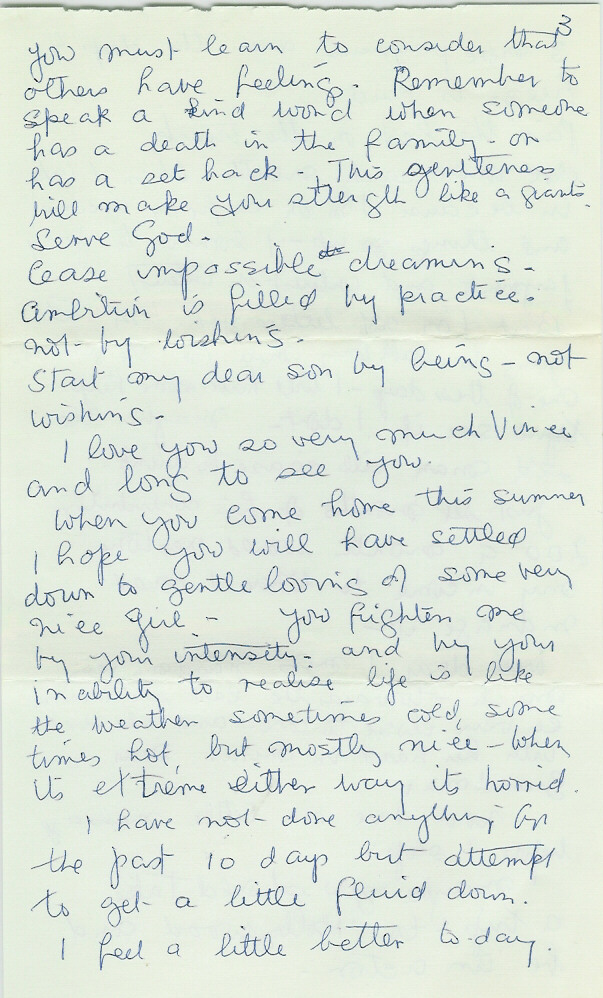 3
you must learn to consider that
others have feelings. Remember to
speak a kind word when someone
has a death in the family - or
has a set back -. This gentleness
will make your strength like a giants.
Serve God.
Cease impossible dreaming.
Ambition is filled by practice.
not by wishing.
Start my dear son by being - not
wishing.
I love you so very much Vince
and long to see you.
When you come home this summer
I hope you will have settled
down to gentle loving of some very
nice girl - you frighten me
by your intensity - and by your
inability to realise life is like
the weather sometimes cold, some
times hot, but mostly nice - when
its extreme either way its horrid.
I have not done anything for
the past 10 days but attempt
to get a little fluid down.
I feel a little better to-day.